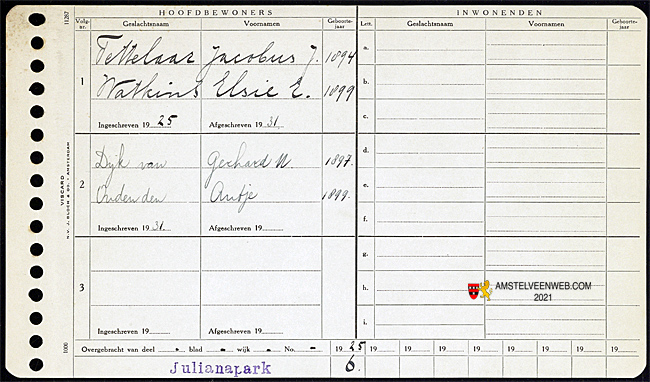 HOOFDBEWONERS
INWONENDEN
Volg-nr.
Geslachtsnaam
Voornamen
Geboorte-jaar
Lett.
Geslachtsnaam
Voornamen
Geboorte-jaar
11287
1
Tettelaar Jacobus J. 1894
Watkins Elsie E. 1899
Ingeschreven 1925
Afgeschreven 1931
a.
b.
c.
2
Dijk van Gerhard N. 1897.
Ouden den Antje 1899.
Ingeschreven 1931.
Afgeschreven 19
d.
e.
f.
3
Ingeschreven 19
Afgeschreven 19
g.
h.
i.
AMSTELVEENWEB.COM
2021
VISCARD
AMSTERDAM
1000
Overgebracht van deel - blad - wijk - No. - 1925 19 19 19 19 19 19 19 19 19
Julianapark 6.